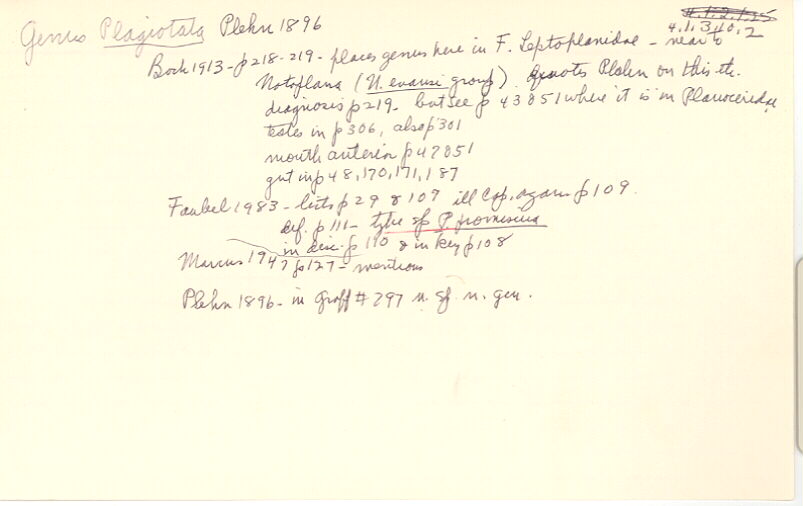 Genus Plagiotata Plehn 1896
4.1.3.10.2
Bock 1913 - p 218-219 - places genus here in F. Leptoplanidae - near to
Notoplana (N. evansi group). Quotes Plehn on this th.
diagnosis p 219 - but see p 43 & 51 where it is in Planoceridae
testes in p 306, also p 301
mouth anterior p 47 & 51
gut in p 48, 170, 171, 187
Faubel 1983 - lists p 29 & 109 ill cop. organs p 109.
def. p 111 - type sp P. promiscua
in disc. p 110 & in key p 108
Marcus 1947 p 127 - mentions
Plehn 1896 - in Graff # 297 n. sp. n. gen.